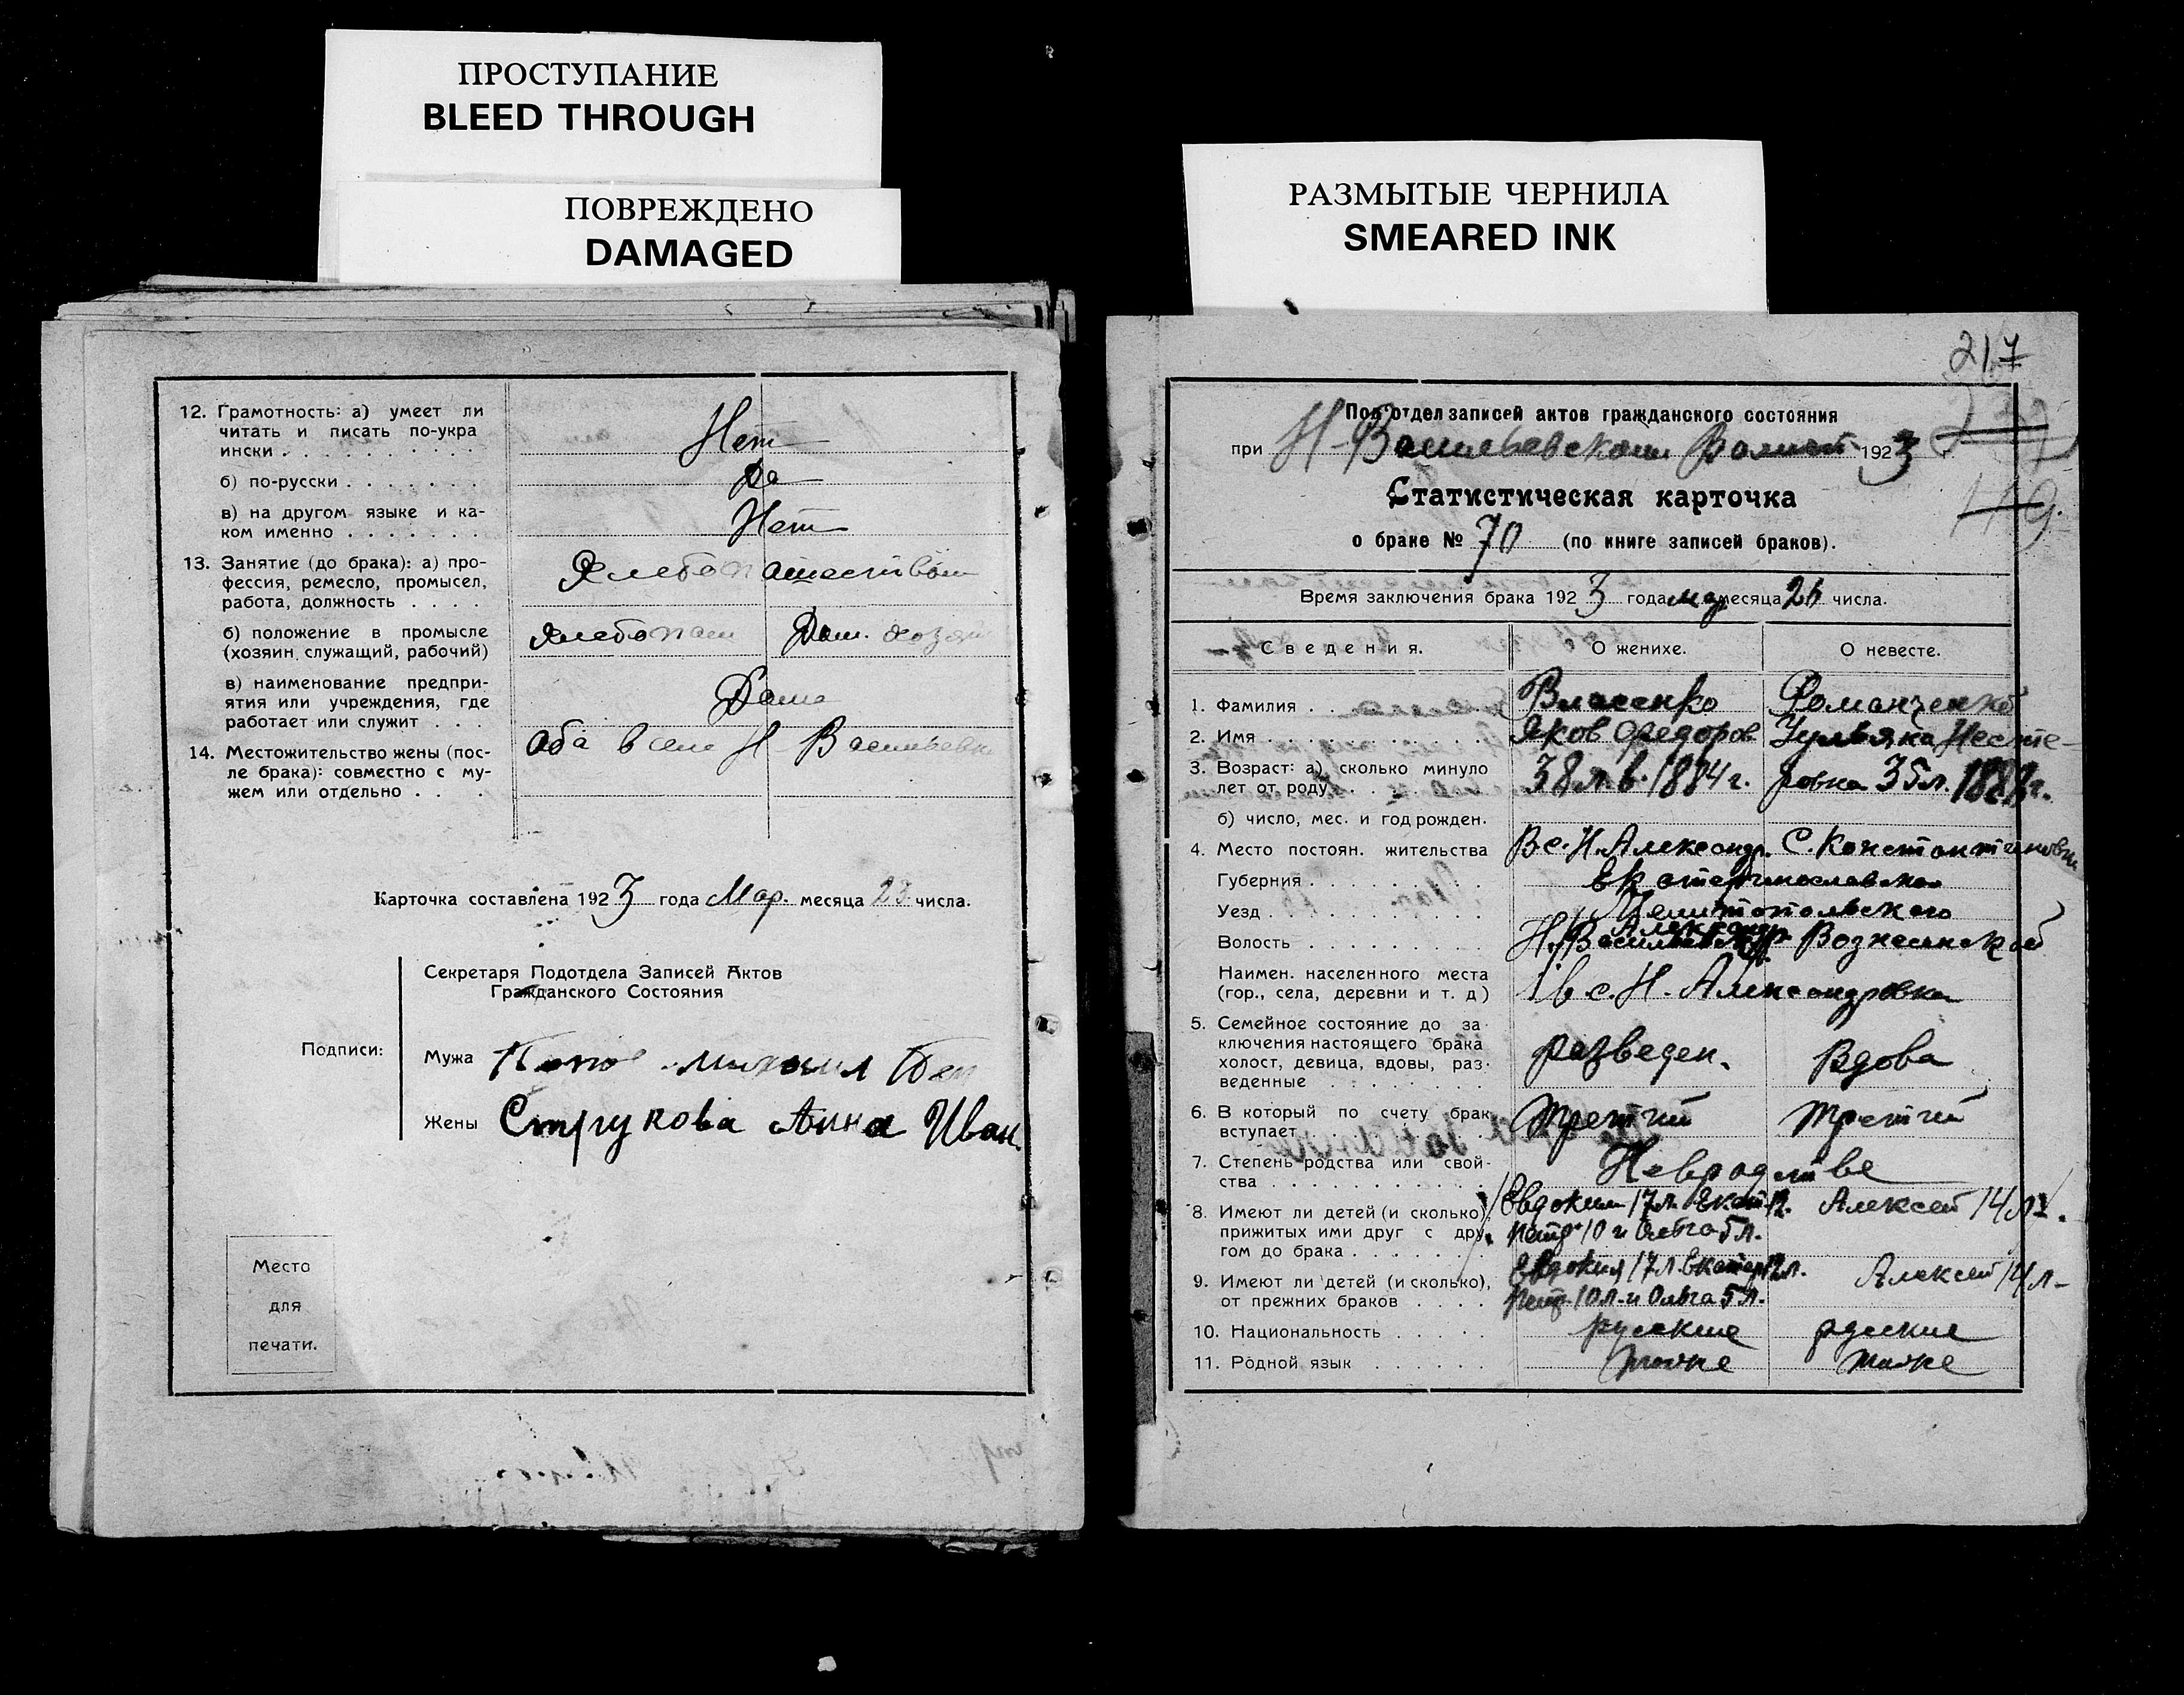 ПРОСТУПАНИЕ
BLEED THROUGH
ПОВРЕЖДЕНО
DAMAGED
12. Грамотность: а) умеет ли
читать и писать по-укра
ински . . . . . . . . . . Нет
б) по-русски . . . . . . . Да
в) на другом языке и ка-
ком именно . . . . . . . Нет
13. Занятие (до брака): а) про-
фессия, ремесло, промысел,
работа, должность . . . . Хлебопашеством
б) положение в промысле
(хозяин, служащий, рабочий) Хлебопаш Дом. хозяй
в) наименование предпри-
ятия или учреждения, где
работает или служит . . . Дома
14. Местожительство жены (пос-
ле брака): совместно с му-
жем или отдельно . . . Оба в селе Н-Васильевке
Карточка составлена 1923 года Мар. месяца 23 числа.
Секретаря Подотдела Записей Актов
Гражданского Состояния
Подписи:
Мужа михаил
Жены Струкова Анна Иван.
Место
для
печати.
РАЗМЫТЫЕ ЧЕРНИЛА
SMEARED INK
217
Подотдел записей актов гражданского состояния
при Н-Васильевском 1923 г.
Статистическая карточка
119.
о браке № 70 (по книге записей браков).
Время заключения брака 1923 года мар месяца 26 числа.
Сведения. О женихе. О невесте.
1. Фамилия . . . Власенко Романченко
2. Имя . . . Яков Федоров Ульяна Несте-
3. Возраст: а) сколько минуло
лет от роду . . . 38 л. в. 1884 г. ровна 35 л. 1888 г.
б) число, мес. и год рожден.
4. Место постоян. жительства В с. Н. Александр. С. Константиновки
Губерния . . . Екатеринославской
Уезд . . . Мелитопольского
Александр
Волость . . . Н. Васильевской Вознесенской
Наимен. населенного места
(гор., села, деревни и т. д.) в с. Н. Александровка
5. Семейное состояние до за-
ключения настоящего брака
холост, девица, вдовы, раз-
веденные . . . разведен. Вдова
6. В который по счету брак
вступает . . . третий третий
7. Степень родства или свой-
ства . . . Невродстве
8. Имеют ли детей (и сколько), Евдоким 17 л. Екат 12. Алексей 14 л.
прижитых ими друг с дру- Петр 10 и Ольга 5 л.
гом до брака . . .
9. Имеют ли детей (и сколько), Евдоким 17 л. Екатер 12 л. Алексей 14 л-
от прежних браков . . . . Петр. 10 л. и Ольга 5 л.
10. Национальность . . . русские русские
11. Родной язык . . . тоже тоже